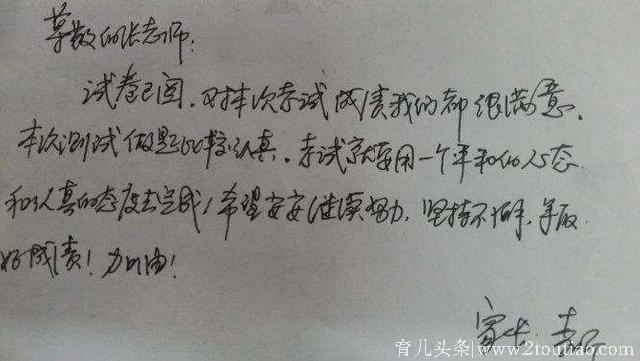 尊敬的张老师:
试卷已阅,对本次考试成绩我们都很满意。
本次测试做题比较认真。考试就要用一个平和的心态
和认真的态度去完成,希望安安继续努力,坚持不懈,争取
好成绩!加油!
家长:
育儿头条|www.2toutiao.com